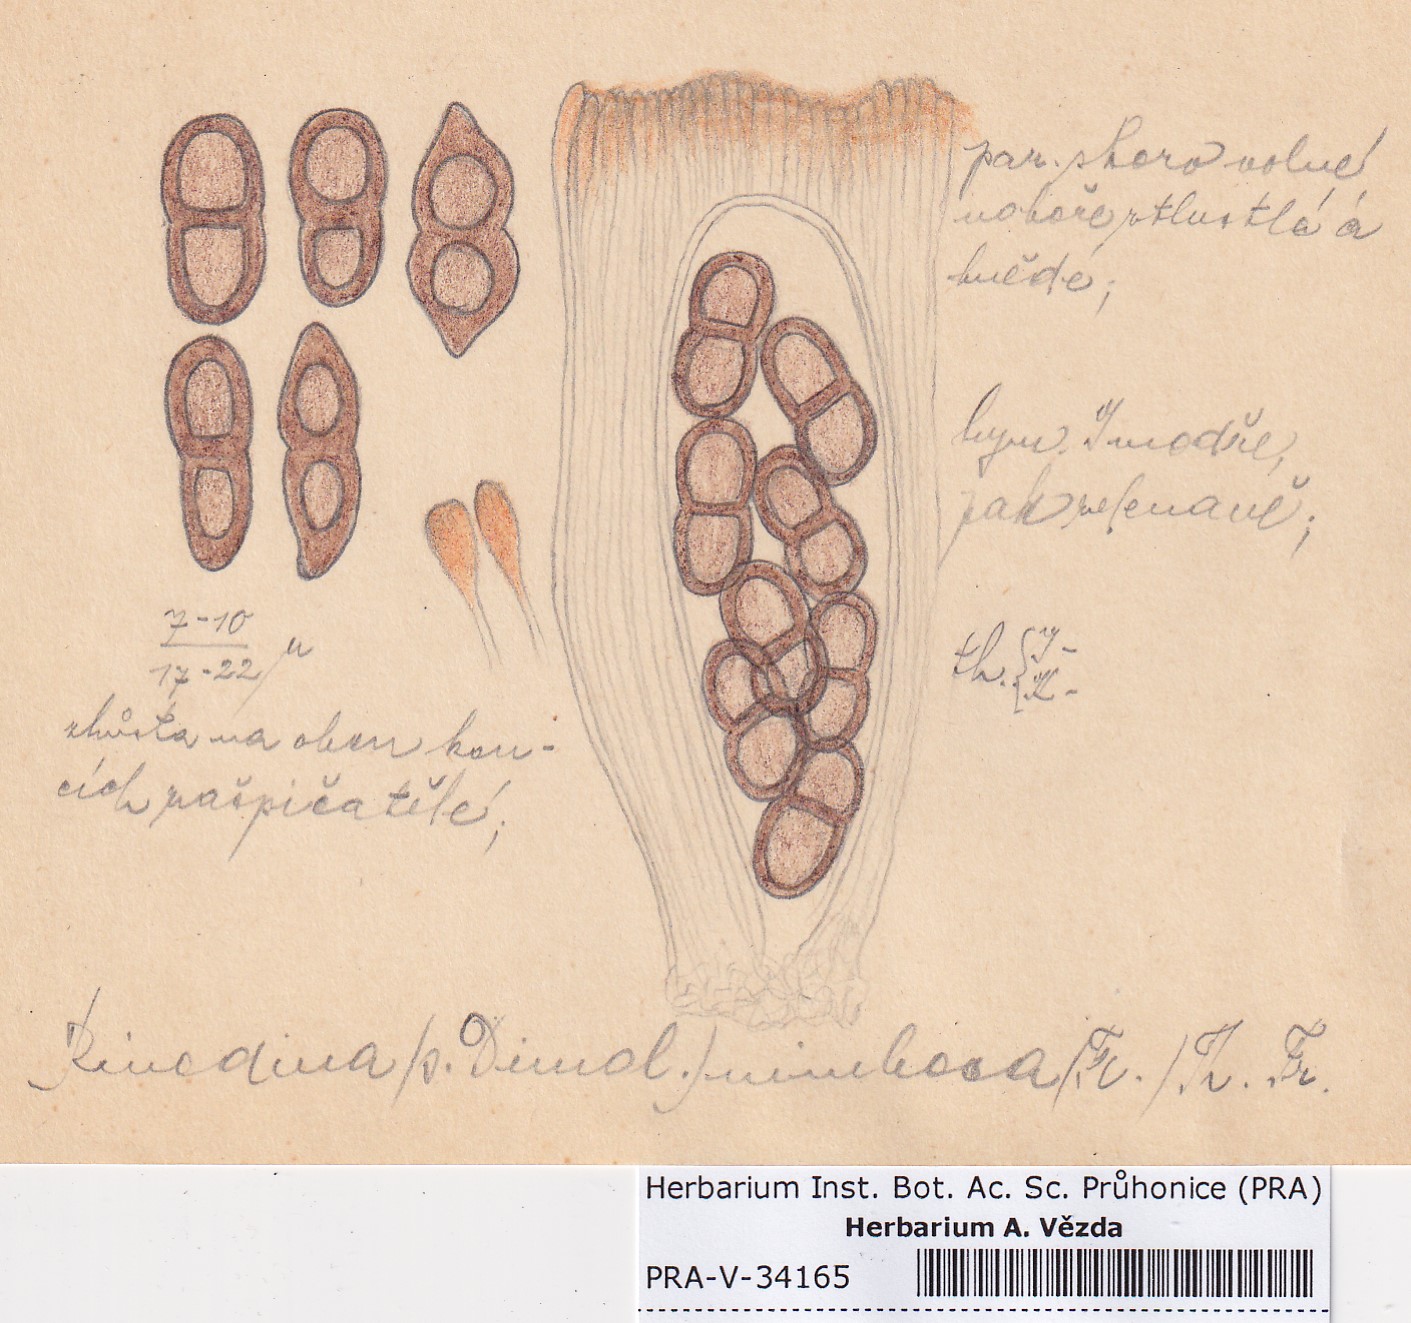 par. skoro volné
nahoře ztlustlé a
hnědé;
hym. J modře,
pak zelenavě;
th. { J -
K -
7-10
17-22 µ
zhusta na obou kon-
cích zašpičatělé;
Rinodina (s. Dimel.) nimbosa (Fr.) Th. Fr.
Herbarium Inst. Bot. Ac. Sc. Průhonice (PRA)
Herbarium A. Vězda
PRA-V-34165